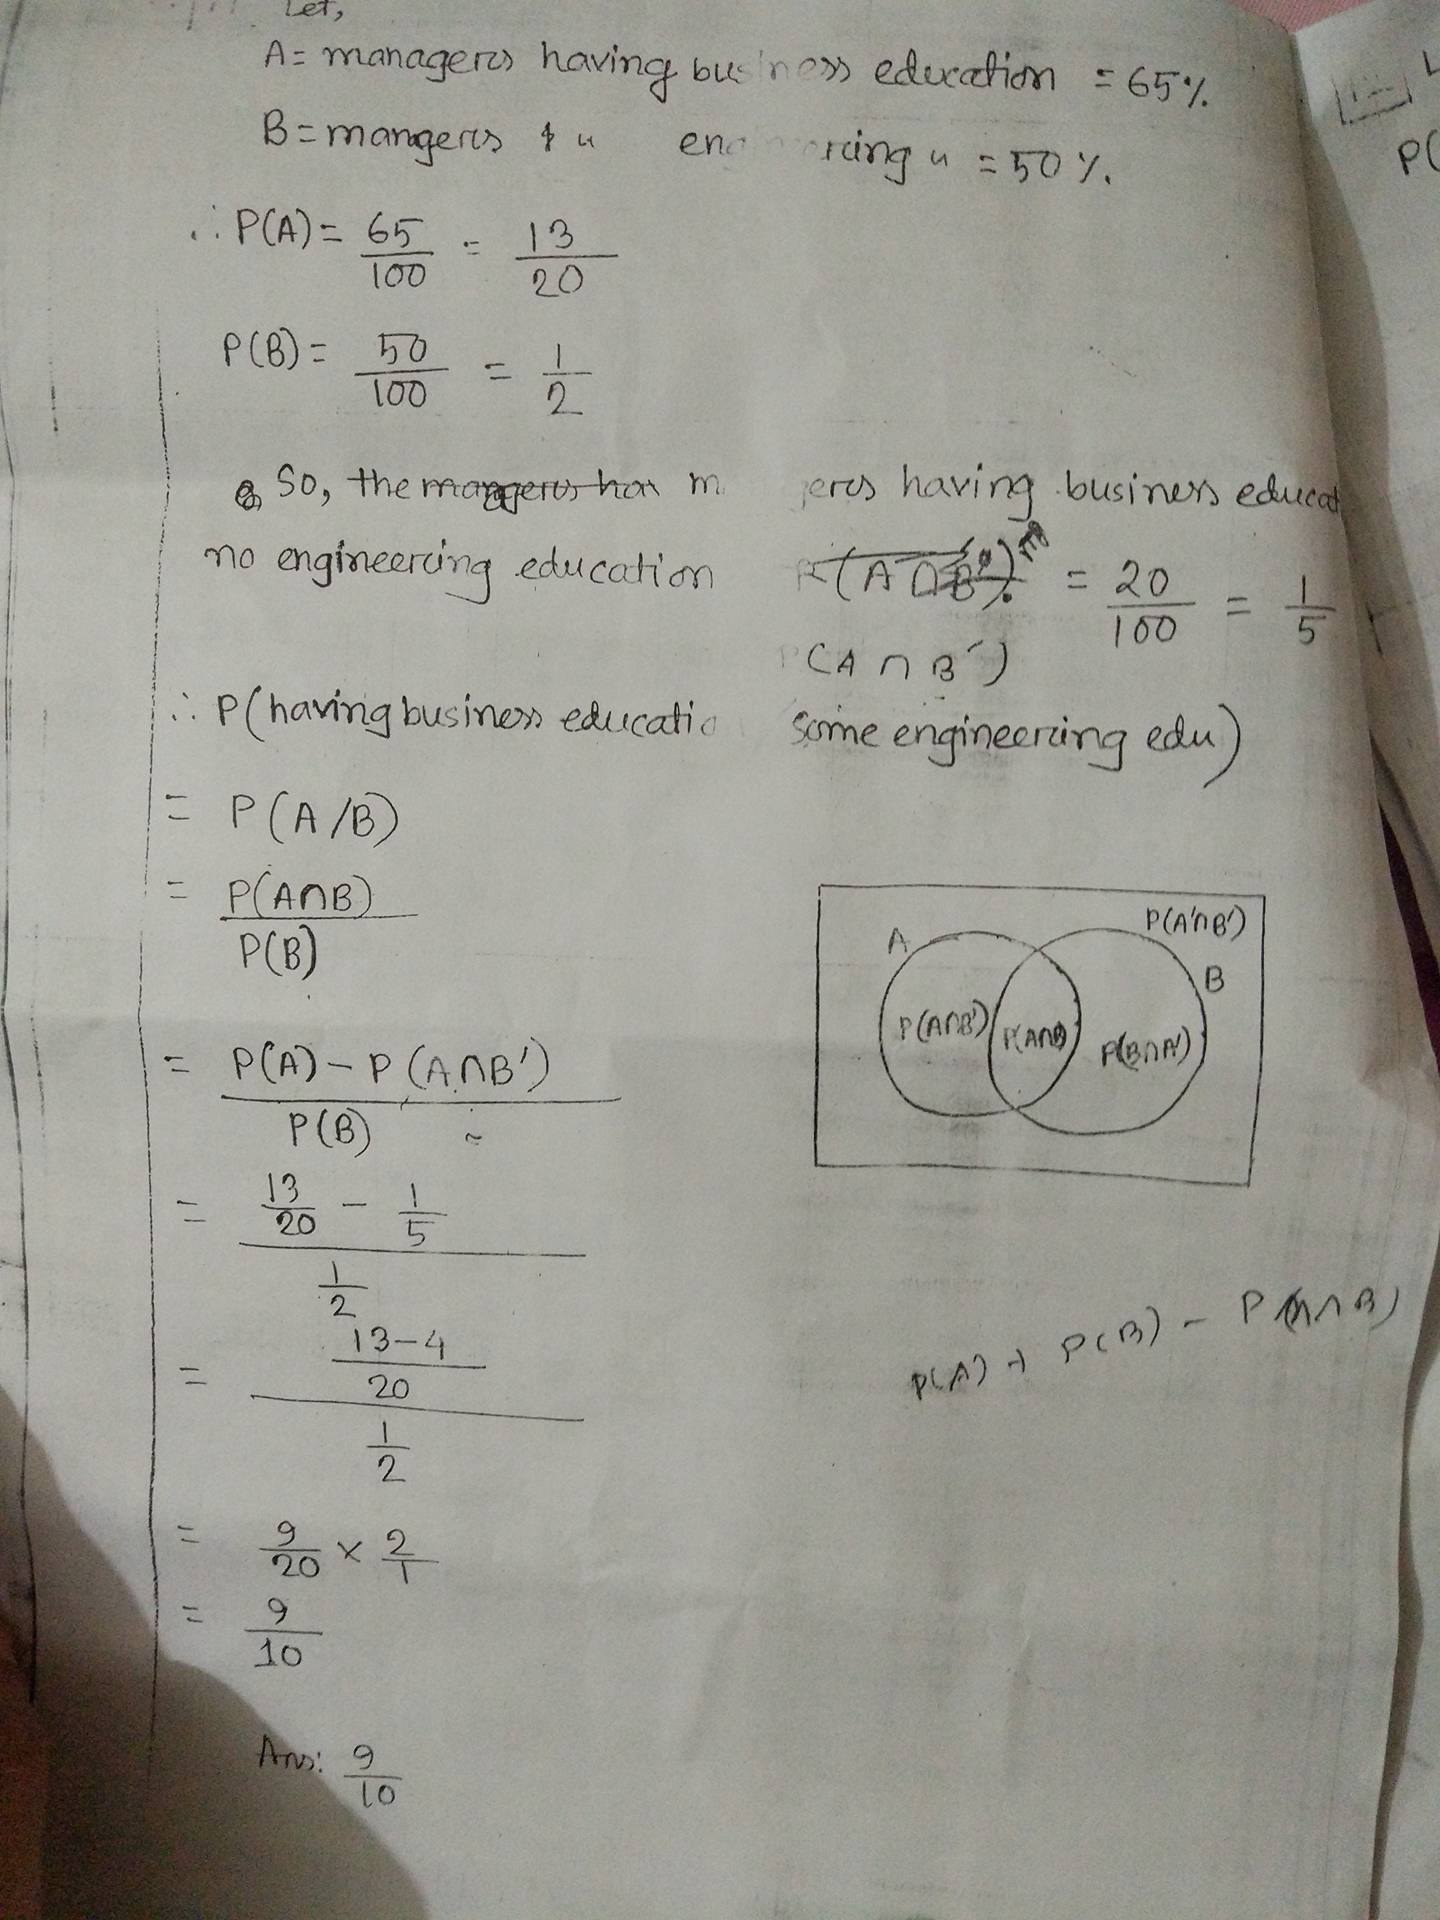 Let,
A = managers having business education = 65%.
B = mangers & " en ering " = 50%.
∴ P(A) = 65/100 = 13/20
P(B) = 50/100 = 1/2
So, the mangers has m ers having business educat
no engineering education (A∩B') = 20/100 = 1/5
(A ∩ B')
∴ P(having business educatio some engineering edu)
= P(A/B)
= P(A∩B)/P(B)
= P(A) - P(A∩B')/P(B)
= 13/20 - 1/5 / 1/2
= 13-4/20 / 1/2
= 9/20 × 2/1
= 9/10
Ans: 9/10
P(A'∩B')
A
B
P(A∩B') P(A∩B) P(B∩A')
P(A) + P(B) - P(A∩B)
P(